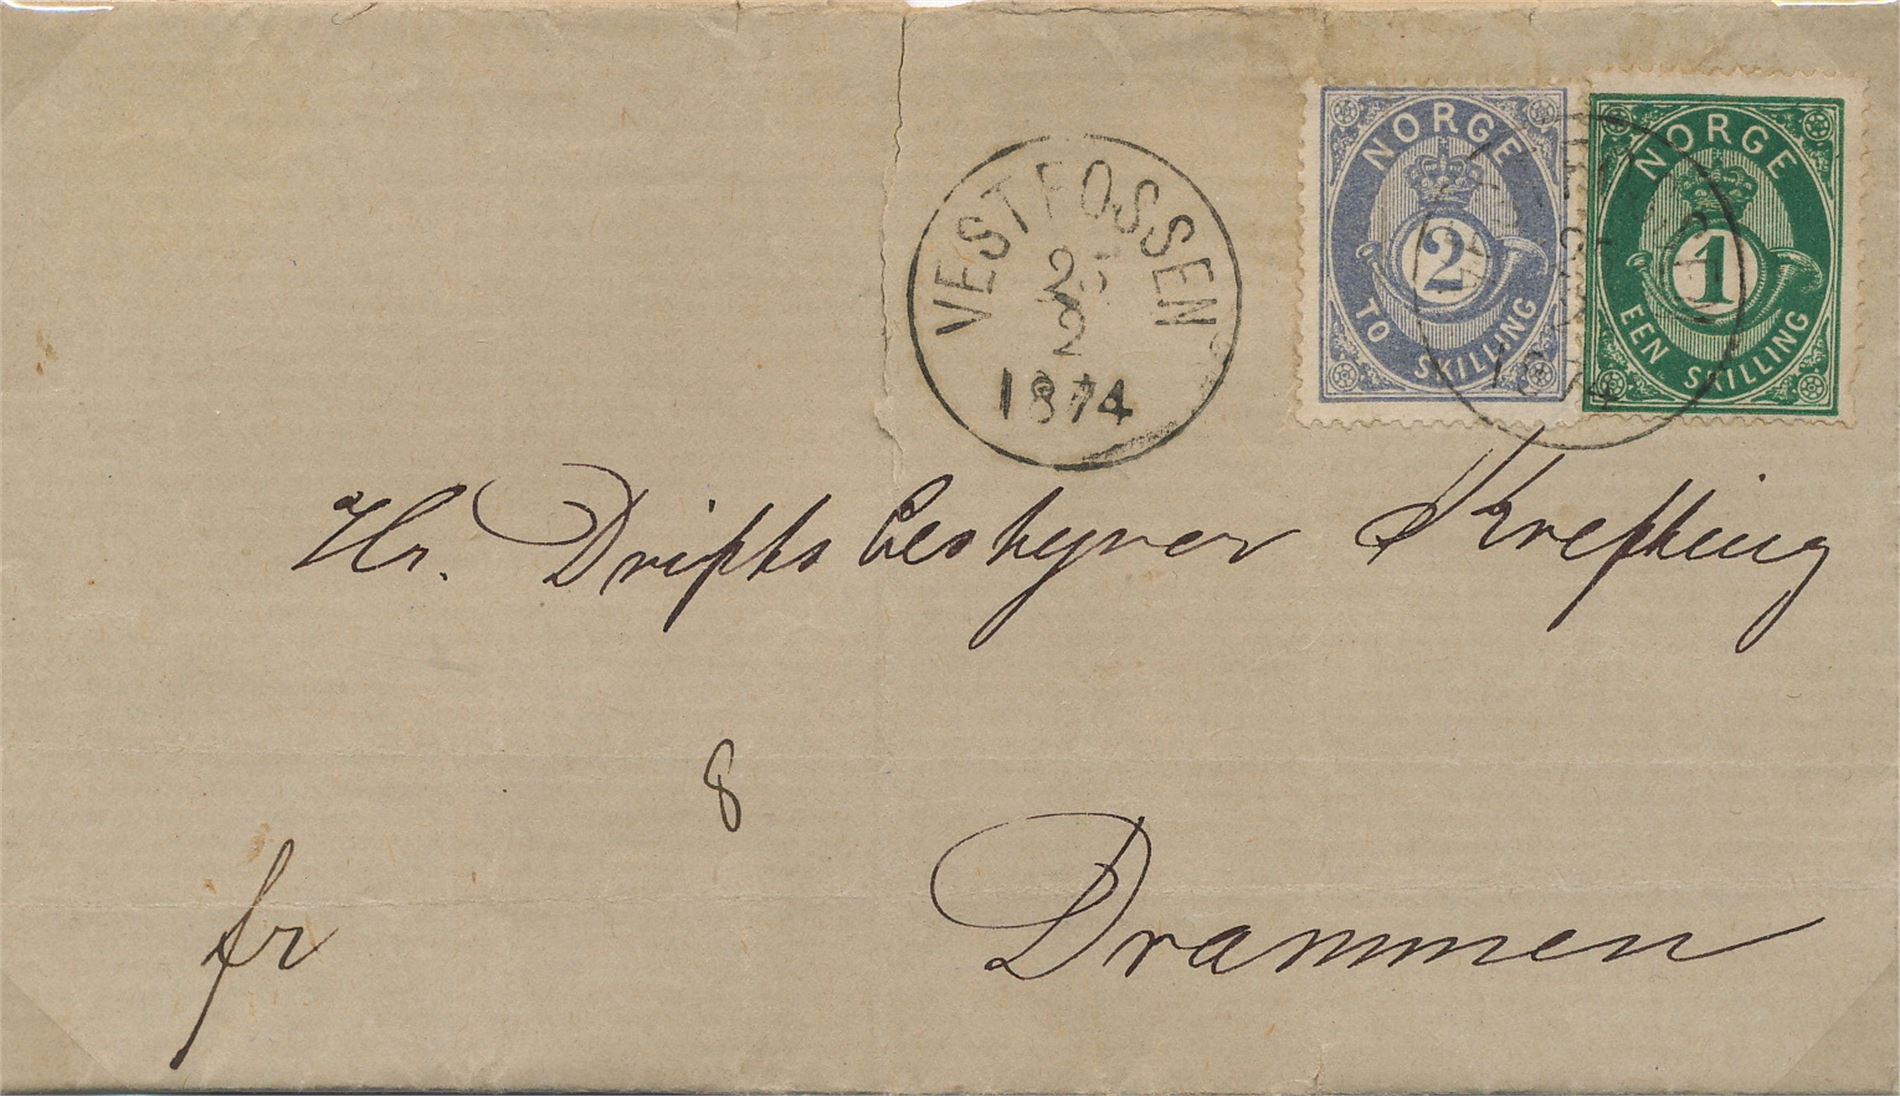 NORGE
2
TO SKILLING
NORGE
1
EEN SKILLING
VESTFOSSEN
25
2
1874
VESTFOSSEN
1874
Hr. Driftsbestyrer Krefting
8
fr
Drammen